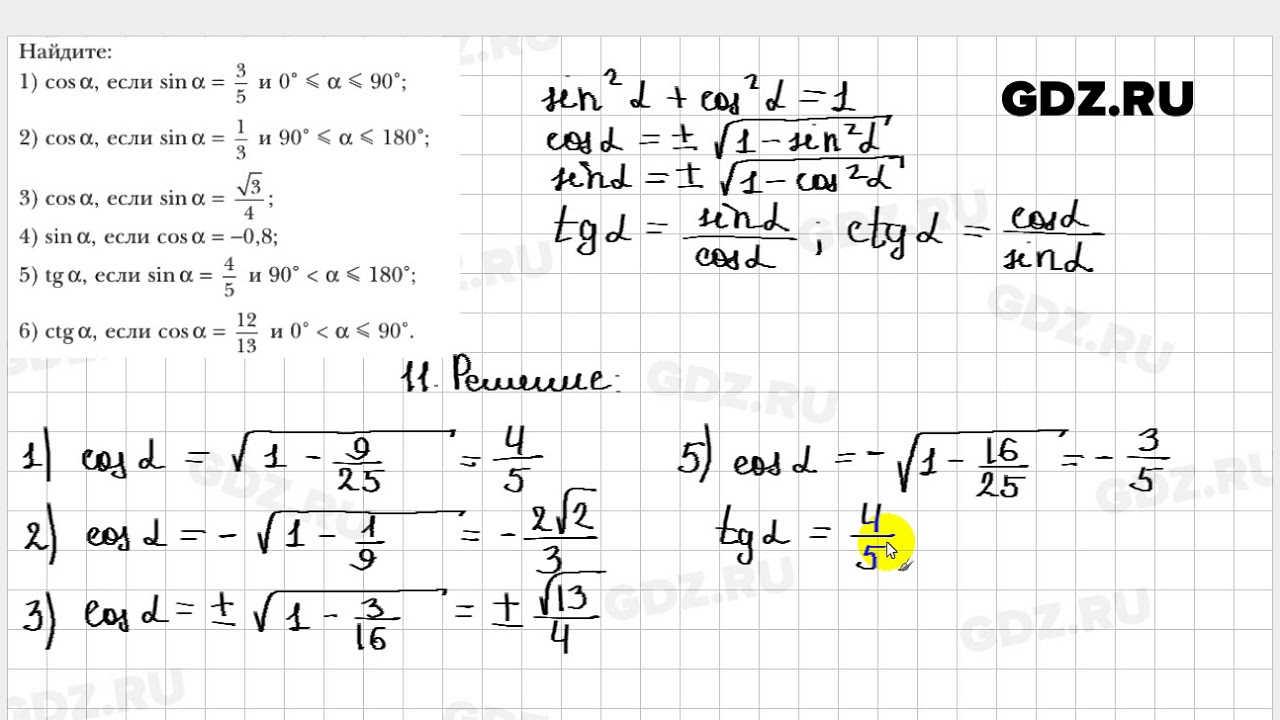 Найдите:
1) cos α, если sin α = 3/5 и 0° ⩽ α ⩽ 90°;
2) cos α, если sin α = 1/3 и 90° ⩽ α ⩽ 180°;
3) cos α, если sin α = √3/4;
4) sin α, если cos α = –0,8;
5) tg α, если sin α = 4/5 и 90° < α ⩽ 180°;
6) ctg α, если cos α = 12/13 и 0° < α ⩽ 90°.
sin²α + cos²α = 1
cosα = ± √(1 − sin²α)
sinα = ± √(1 − cos²α)
tgα = sinα/cosα ; ctgα = cosα/sinα
GDZ.RU
11. Решение:
1) cosα = √(1 − 9/25) = 4/5
2) cosα = − √(1 − 1/9) = − 2√2/3
3) cosα = ± √(1 − 3/16) = ± √13/4
5) cosα = − √(1 − 16/25) = − 3/5
tgα = 4/5
GDZ.RU
GDZ.RU
GDZ.RU
GDZ.RU
GDZ.RU
GDZ.RU
GDZ.RU
GDZ.RU
GDZ.RU
GDZ.RU